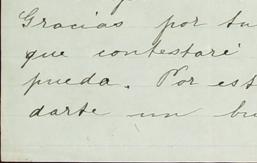 Gracias por tu
que contestaré
pueda. Por est
darte un bu